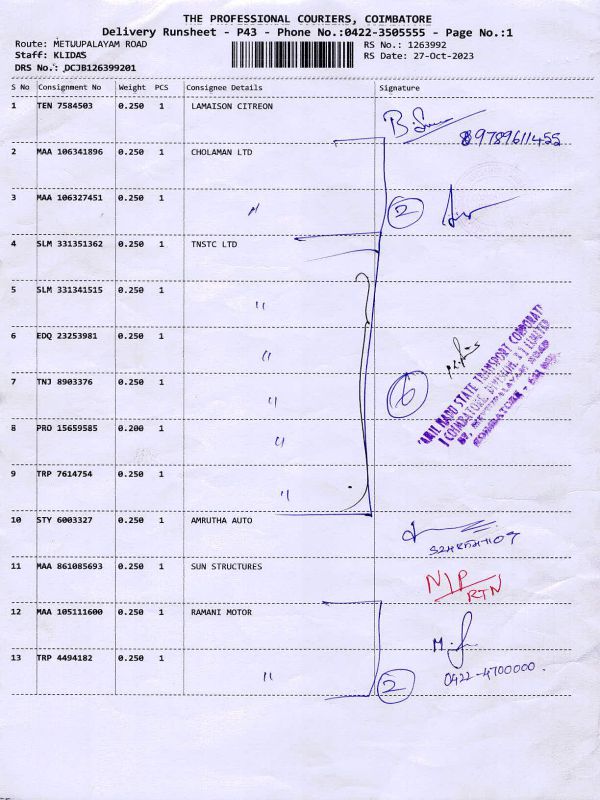 THE PROFESSIONAL COURIERS, COIMBATORE
Delivery Runsheet - P43 - Phone No.:0422-3505555 - Page No.:1
Route: METUUPALAYAM ROAD
Staff: KLIDAS
DRS No.: DCJB126399201
RS No.: 1263992
RS Date: 27-Oct-2023
S No Consignment No Weight PCS Consignee Details Signature
1 TEN 7584503 0.250 1 LAMAISON CITREON
9789611455
2 MAA 106341896 0.250 1 CHOLAMAN LTD
3 MAA 106327451 0.250 1 〃 2
4 SLM 331351362 0.250 1 TNSTC LTD
5 SLM 331341515 0.250 1 〃
6 EDQ 23253981 0.250 1 〃
7 TNJ 8903376 0.250 1 〃 6
TAMIL NADU STATE TRANSPORT CORPORATION
(COIMBATORE, DIVISION II) LIMITED
37, METTUPALAYAM ROAD
8 PRO 15659585 0.200 1 〃
9 TRP 7614754 0.250 1 〃
10 STY 6003327 0.250 1 AMRUTHA AUTO
11 MAA 861085693 0.250 1 SUN STRUCTURES N/P
RTN
12 MAA 105111600 0.250 1 RAMANI MOTOR
13 TRP 4494182 0.250 1 〃 2 0422-4700000.